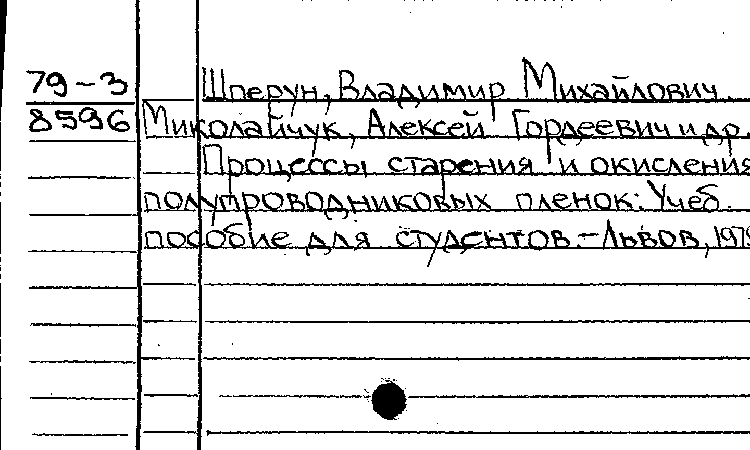 79-3 Шперун, Владимир Михайлович.
8596 Миколайчук, Алексей Гордеевич и др.
Процессы старения и окисления
полупроводниковых пленок: Учеб.
пособие для студентов.-Львов, 1979